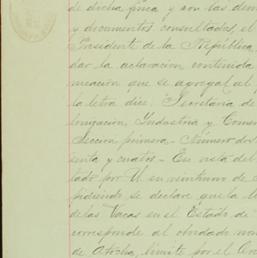 de dicha finca y son las den
y documentos consultados, el
Presidente de la República
dar la aclaración contenida
nicación que se agregal al
la letra dice. Secretaría de
lonización, Industria y Comer
Sección primera. Número dos
senta y cuatro. En vista del
tado por U. en veintiuno de
pidiendo se declare que la
de las Vacas en el Estado de
corresponde al
de Atocha, límite por el